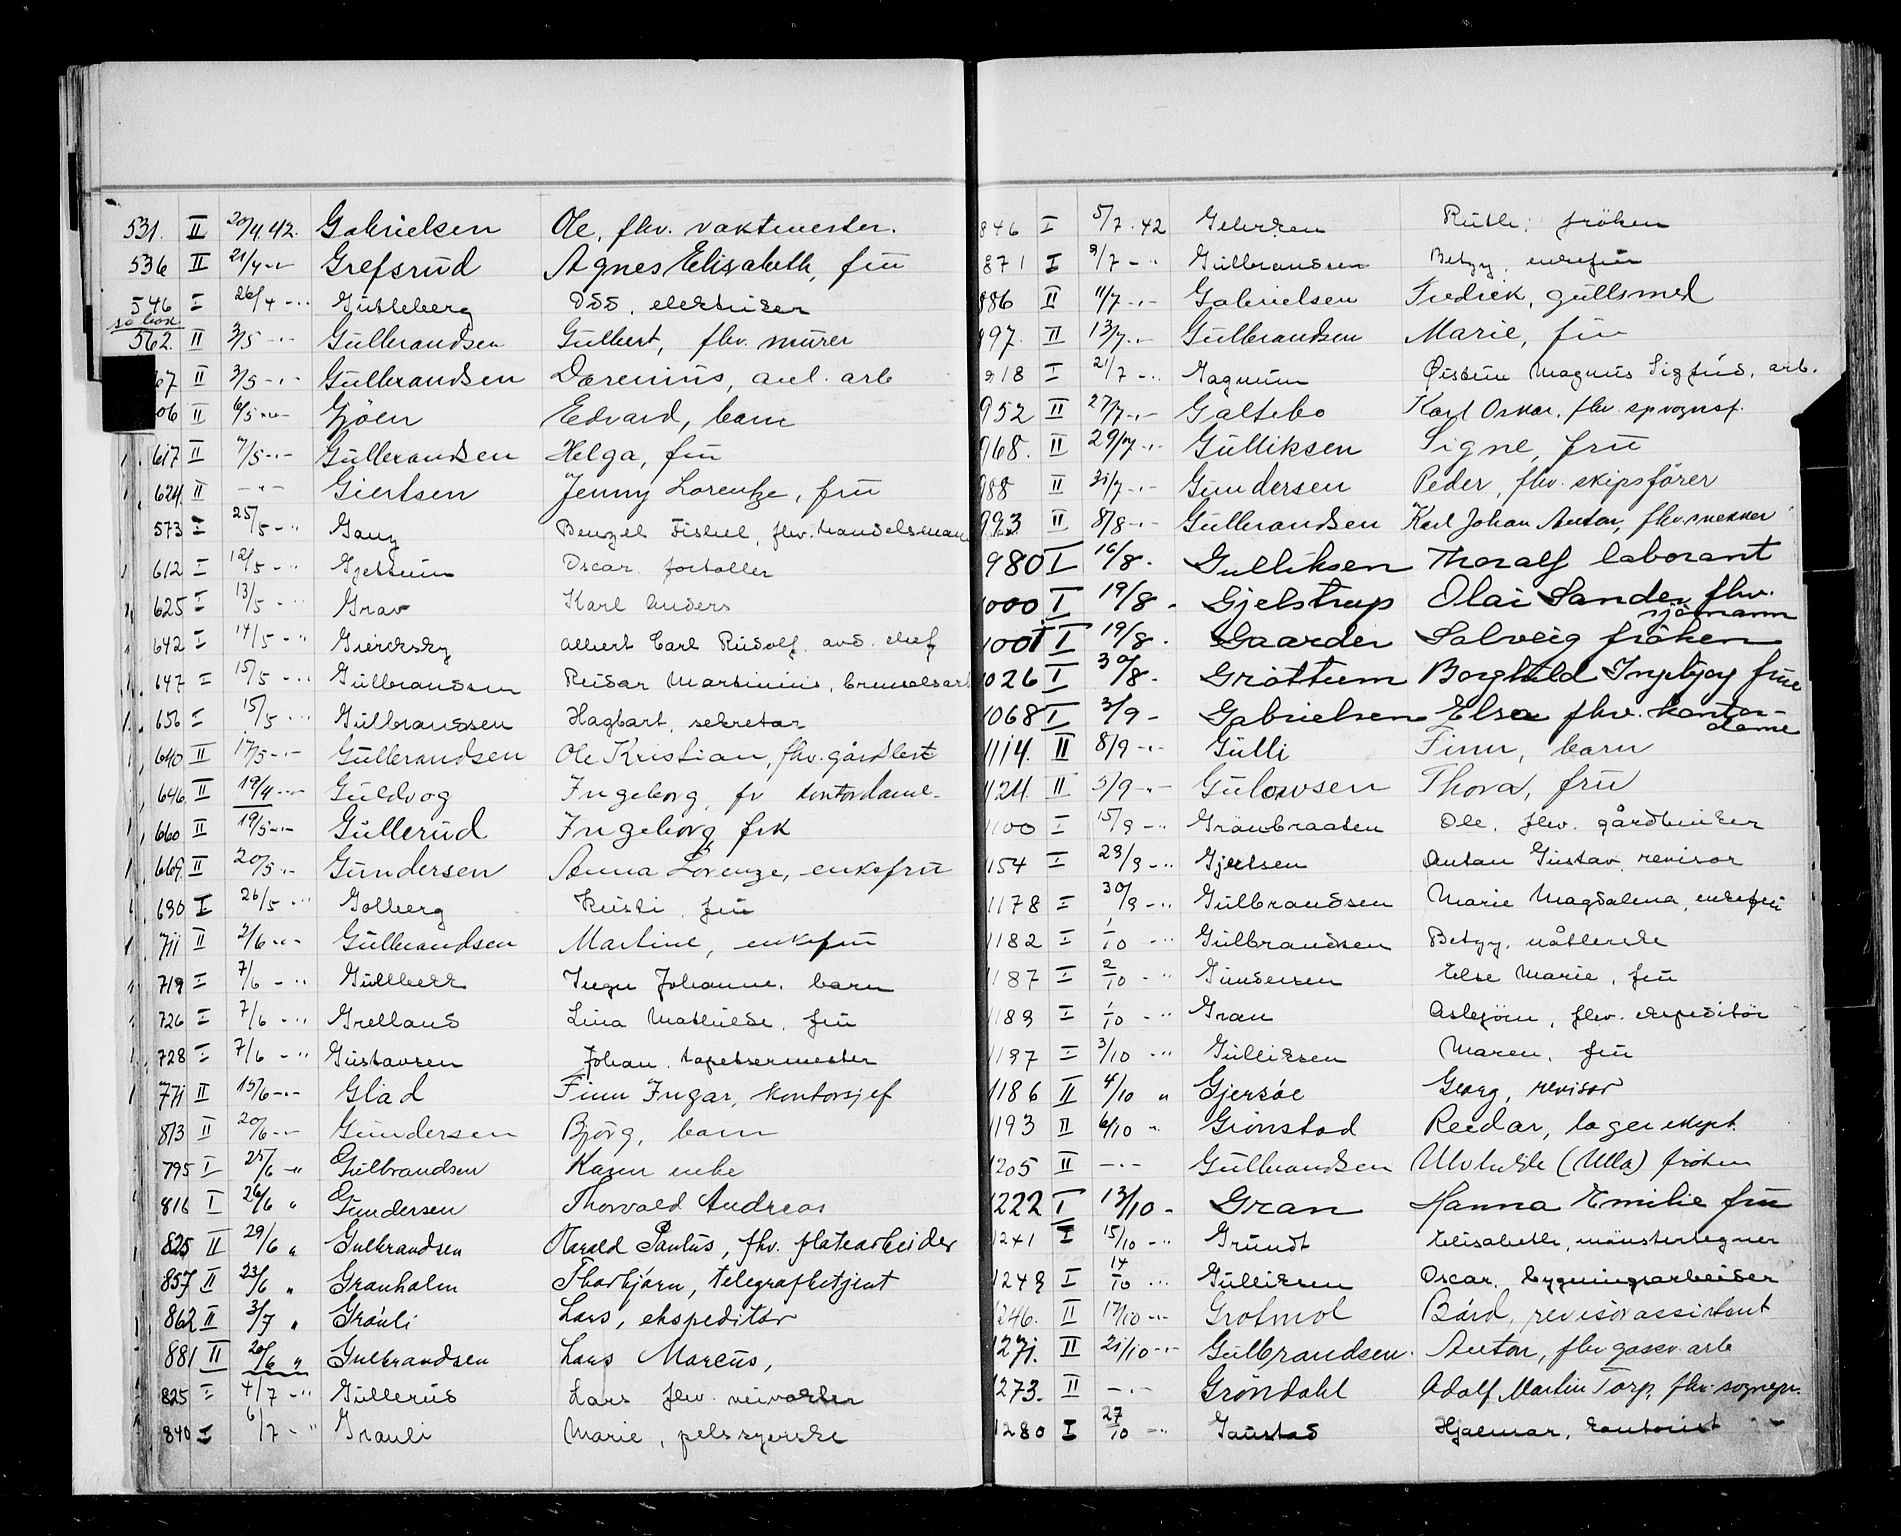 531. II 20/4.42. Gabrielsen Ole, fhv. vaktmester.
536 II 21/4 -"- Grefsrud Agnes Elisabeth, fru
546 I 26/4 -"- Gutteberg Odd, elektriker
se bok
562. II 3/5 -"- Gulbrandsen Gulbert, fhv. murer
67 II 3/5 -"- Gulbrandsen Dorenius, anl. arb
06 II 6/5 -"- Gjöen Edvard, barn
617 II 7/5 -"- Gulbrandsen Helga, fru
624 II -"- Giertsen Jenny Lorentze, fru
573 I 25/5 -"- Ganz Benzel Fishel, fhv. handelsmann
612 I 12/5 -"- Gjelseim Oscar fortaller
625 I 13/5 -"- Grav Karl Anders
642 I 14/5 -"- Giercksky Albert Carl Rudolf avd. chef
647 I 15/5 -"- Gulbrandsen Reidar Martinius,
656 I 15/5 -"- Gulbrandsen Hagbart, sekretær
640 II 17/5 -"- Gulbrandsen Ole Kristian, fhv. gårdbest
646. II 19/4 -"- Guldvog Ingeborg, fv kontordame
660 II 19/5 -"- Gullerud Ingeborg frk
669. II 20/5 -"- Gundersen Anna Lovenze, enkefru
690 I 26/5 -"- Golberg Kristi, fru
711 II 2/6 -"- Gulbrandsen Martine, enkefru
719 I 7/6 -"- Gullbekk Inger Johanne, barn
726 I 7/6 -"- Grelland Lina Mathilde, fru
728 I 7/6 -"- Gustavsen Johan, tapetsermester
771 II 15/6 -"- Glad Finn Ingar, kontorsjef
813 II 20/6 -"- Gundersen Bjørg, barn
795 I 25/6 -"- Gulbrandsen Karen enke
816 I 26/6 " Gundersen Thorvald Andreas
825 II 29/6 " Gulbrandsen Harald Paulus, fhv. platearbeider
857 II 23/6 " Granholm Thorbjørn, telegrafbetjent
862 II 3/7 " Grånli Lars, ekspeditør
881 II 20/6 " Gulbrandsen Lars Marcus,
825 I 4/7 -"- Gullerud Lars fhv. veivokter
840 I 6/7 -" Granli Marie, pelssyerske
846 I 5/7.42 Gehrken Ruth, fröken
871 I 9/7 -"- Gulbrandsen Betzy, enkefru
886 II 11/7 -"- Gabrielsen Fredrik, gullsmed
897. II 13/7 -"- Gulbrandsen Marie, fru
918 I 21/7 -"- Gagnum Øistein Magnus Sigfrid, arb.
952 II 27/7 -"- Galtebo Karl Oskar, fhv. spvognsf.
968. II 29/7 -"- Gulliksen Signe, fru
988 II 31/7 -"- Gundersen Peder, fhv. skipsfører
993 II 8/8 -"- Gulbrandsen Karl Johan Anton, fhv snekker
980 I 16/8. Gulliksen Thoralf laborant
1000 I 19/8 - Gjelstrup Olai Sander fhv.
sjömann
1001 I 19/8. Gaarder Solveig fröken
1026 I 30/8. Gröttum Borghild Ingebjorg frue
1068 I 3/9 - Gabrielsen Elsa fhv. kontor-
dame
1114. II 8/9 -"- Gulli Finn, barn
1124. II 5/9 -"- Gulowsen Thora, fru
1100 I 15/9 -"- Grönbraaten Ole, fhv. gårdbruker
1154 I 29/9 -"- Gjertsen Anton Gustav revisor
1178 I 30/9 -"- Gulbrandsen Marie Magdalena, enkefru
1182 I 1/10 -"- Gulbrandsen Betzy, nåtlerske
1187 I 2/10 -" Gundersen Else Marie, fru
1189 I 1/10 -" Gran Asbjörn, fhv. ekspeditör
1197 I 3/10 -"- Gulliksen Maren, fru
1186 II 4/10 " Gjersöe Georg, revisor
1193 II 6/10 " Grönstad Reidar, lagerekspt.
1205 II -"- Gulbrandsen Ulvhilde (Ulla) fröken
1222 I 13/10 - Gran Hanna Emilie fru
1241 I 15/10 -"- Grundt Elisabeth, mönstertegner
1249 I 14/10 -"- Gulliksen Oscar, bygningsarbeider
1246. II 17/10 -"- Grotmol Bård, revisorassistent
1271. II 21/10 -"- Gulbrandsen. Anton, fhv gassv. arb
1273. II -"- Gröndahl Adolf Martin Torp, fhv. sognepr.
1280 I 27/10 -"- Gaustad Hjalmar, kontorist